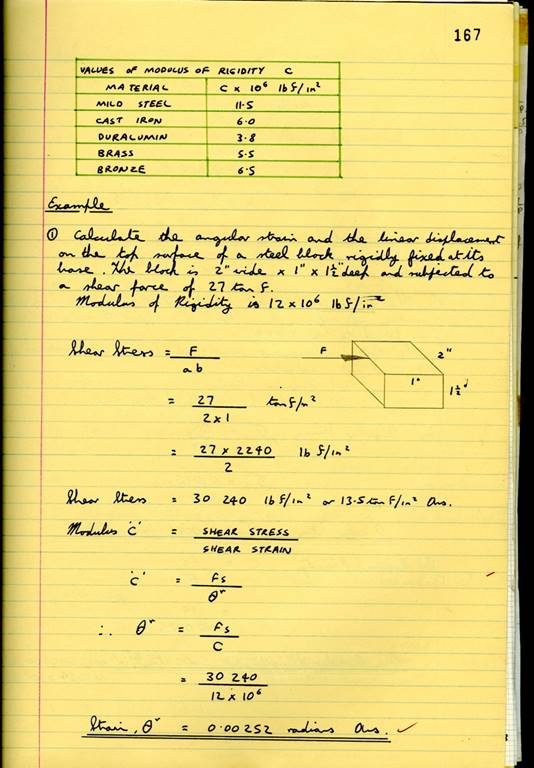 167
VALUES OF MODULUS OF RIGIDITY C
MATERIAL C x 10⁶ lb f/in²
MILD STEEL 11.5
CAST IRON 6.0
DURALUMIN 3.8
BRASS 5.5
BRONZE 6.5
Example
① Calculate the angular strain and the linear displacement
on the top surface of a steel block rigidly fixed at its
base. The block is 2" wide x 1" x 1½" deep and subjected to
a shear force of 27 ton f.
Modulus of Rigidity is 12 x 10⁶ lb f/in²
Shear Stress = F / ab
F 2" 1" 1½"
= 27 / 2 x 1 ton f/in²
= 27 x 2240 / 2 lb f/in²
Shear Stress = 30 240 lb f/in² or 13.5 ton f/in² Ans.
Modulus 'C' = SHEAR STRESS / SHEAR STRAIN
'C' = Fs / θʳ
∴ θʳ = Fs / C
= 30 240 / 12 x 10⁶
Strain, θʳ = 0.00252 radians Ans. ✓